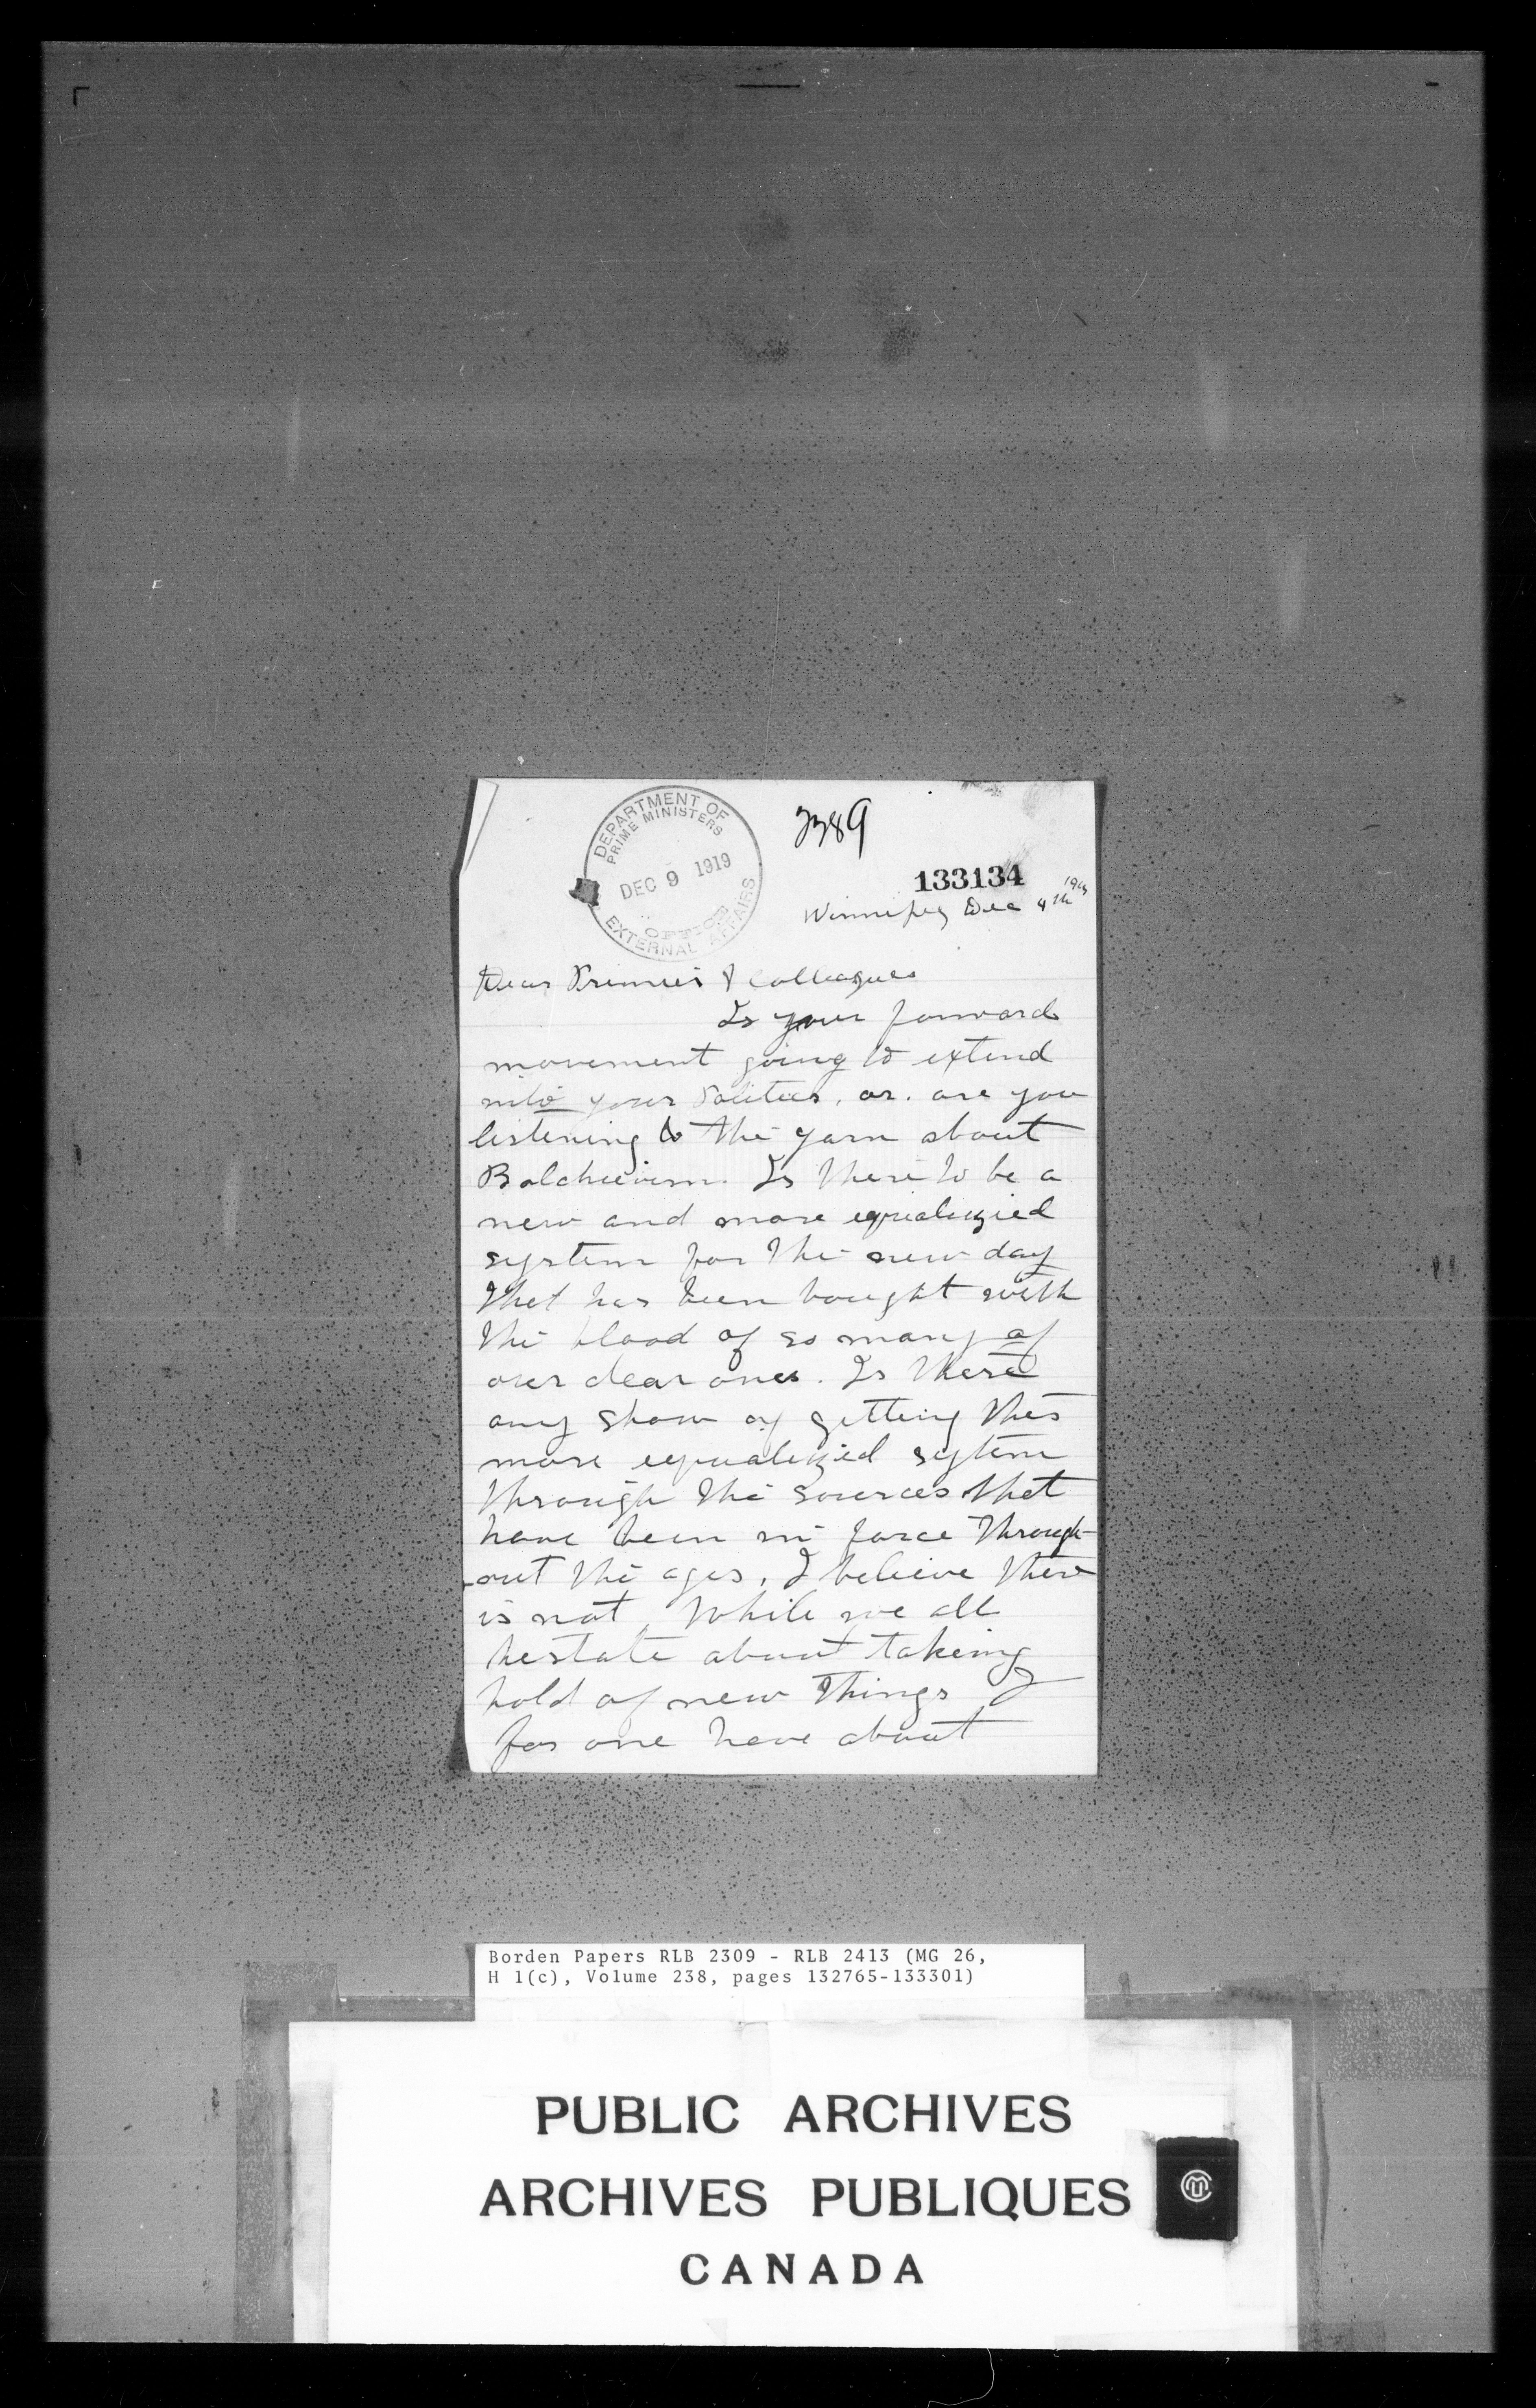 DEPARTMENT OF
PRIME MINISTERS
DEC 9 1919
OFFICE
EXTERNAL AFFAIRS
2389
133134
Winnipeg Dec 4th 1919
Dear Premier & Colleagues
Is your forward
movement going to extend
into your Politics, or. are you
listening to the yarn about
Bolcheevism. Is there to be a
new and more equalizied
system for the new day
that has been bought with
the blood of so many of
our dear ones. Is there
any show of getting this
more equalizied sytem
through the sources that
have been in force through-
-out the ages, I believe there
is not, While we all
hestate about takeing
hold of new things I
for one have about
Borden Papers RLB 2309 - RLB 2413 (MG 26,
H 1(c), Volume 238, pages 132765-133301)
PUBLIC ARCHIVES
ARCHIVES PUBLIQUES
CANADA